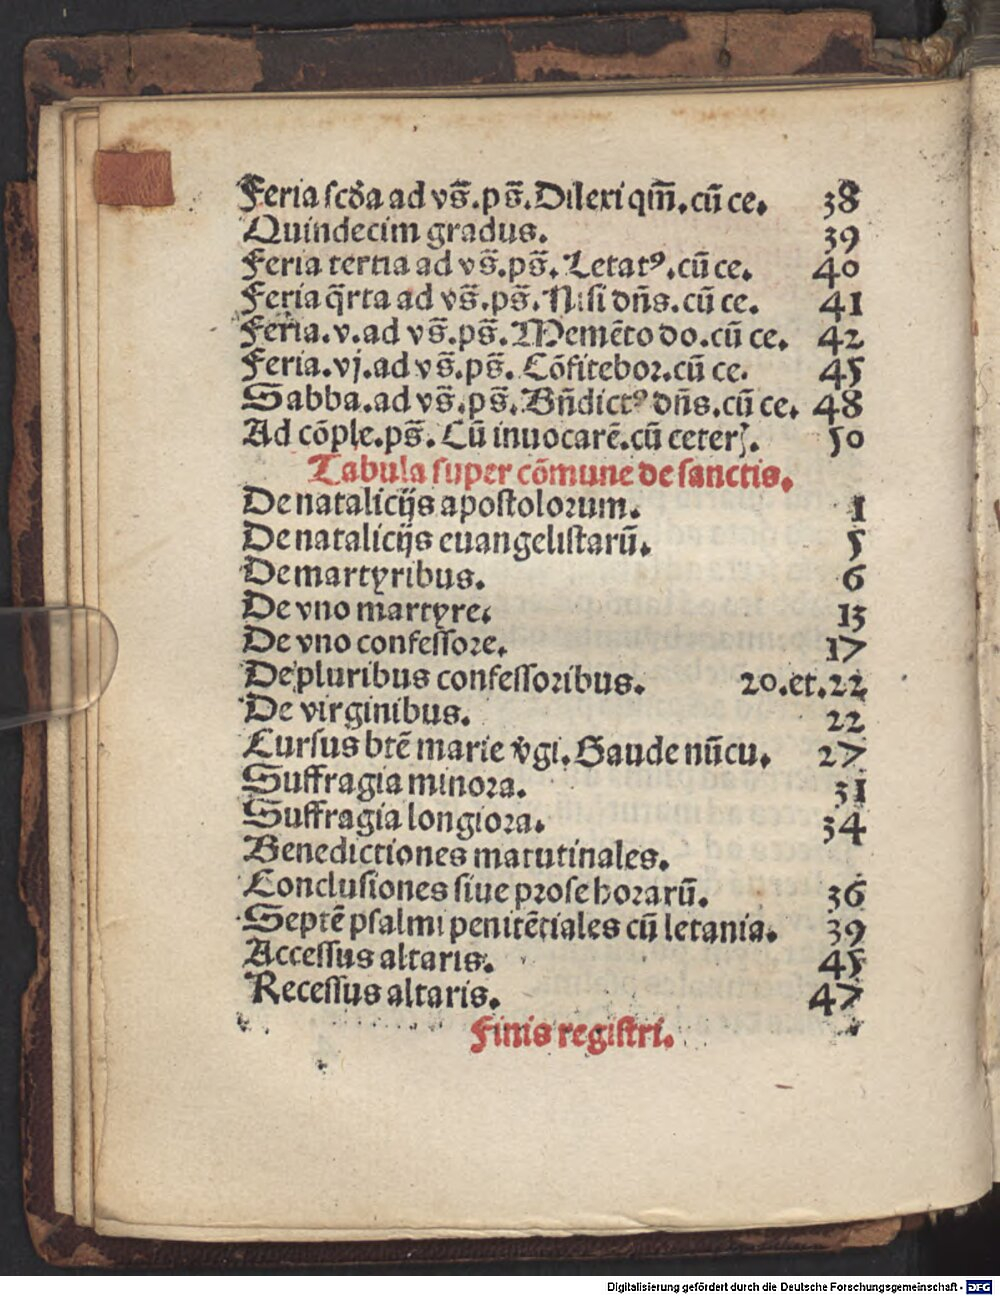 Feria scďa ad vs̄.ps̄.Dilexi qm̄.cū ce. 38
Quindecim gradus. 39
Feria tertia ad vs̄.ps̄.Letatꝰ.cū ce. 40
Feria q̄rta ad vs̄.ps̄.Nisi dn̄s.cū ce. 41
Feria.v.ad vs̄.ps̄.Memēto do.cū ce. 42
Feria.vj.ad vs̄.ps̄.Cōfitebor.cū ce. 45
Sabba.ad vs̄.ps̄.Bn̄dictꝰ dn̄s.cū ce. 48
Ad cōple.ps̄.Cū inuocarē.cū ceterꝭ. 50
Tabula super cōmune de sanctis.
De natalicijs apostolorum. 1
De natalicijs euangelistarū. 5
De martyribus. 6
De vno martyre. 13
De vno confessore. 17
De pluribus confessoribus. 20.et.22
De virginibus. 22
Cursus btē marie v̄gi.Gaude nūcu. 27
Suffragia minora. 31
Suffragia longiora. 34
Benedictiones matutinales.
Conclusiones siue prose horarū. 36
Septē psalmi penitētiales cū letania. 39
Accessus altaris. 45
Recessus altaris. 47
Finis registri.
Digitalisierung gefördert durch die Deutsche Forschungsgemeinschaft - DFG